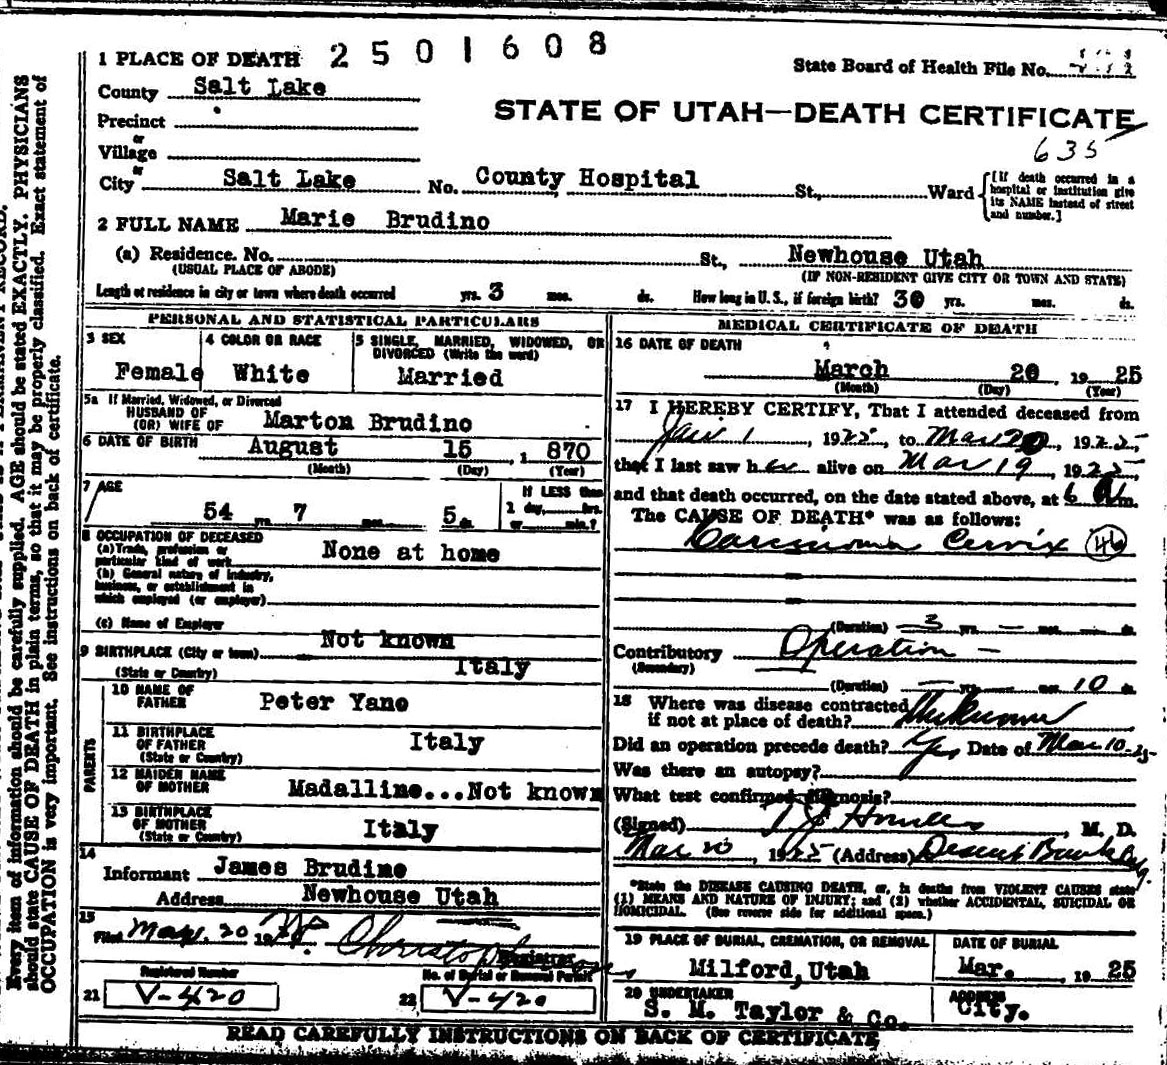 1 PLACE OF DEATH 2501608
State Board of Health File No.
County Salt Lake
STATE OF UTAH—DEATH CERTIFICATE
Precinct
635
or
Village
or
City Salt Lake No. County Hospital St., Ward
[If death occurred in a
hospital or institution give
its NAME instead of street
and number.]
2 FULL NAME Marie Brudino
(a) Residence. No. St., Newhouse Utah
(USUAL PLACE OF ABODE) (IF NON-RESIDENT GIVE CITY OR TOWN AND STATE)
Length of residence in city or town where death occurred yrs. 3 mos. ds. How long in U. S., if foreign birth? 30 yrs. mos. ds.
PERSONAL AND STATISTICAL PARTICULARS
3 SEX
Female
4 COLOR OR RACE
White
5 SINGLE, MARRIED, WIDOWED, OR
DIVORCED (Write the word)
Married
5a If Married, Widowed, or Divorced
HUSBAND OF
(OR) WIFE OF Marton Brudino
6 DATE OF BIRTH August 15, 1870
(Month) (Day) (Year)
7 AGE
54 yrs. 7 mos. 5 ds.
If LESS than
1 day, hrs.
or min.?
8 OCCUPATION OF DECEASED
(a) Trade, profession or
particular kind of work None at home
(b) General nature of industry,
business, or establishment in
which employed (or employer)
(c) Name of Employer
Not known
9 BIRTHPLACE (City or town)
(State or Country) Italy
PARENTS
10 NAME OF
FATHER Peter Yano
11 BIRTHPLACE
OF FATHER Italy
(State or Country)
12 MAIDEN NAME
OF MOTHER Madalline...Not known
13 BIRTHPLACE
OF MOTHER Italy
(State or Country)
14
Informant James Brudine
Address Newhouse Utah
15
Filed Mar. 20 19
Registrar
Registered Number No. of Burial or Removal Permit
21 V-420 22 V-420
MEDICAL CERTIFICATE OF DEATH
16 DATE OF DEATH
March 20, 1925
(Month) (Day) (Year)
17 I HEREBY CERTIFY, That I attended deceased from
Jan 1, 1925, to Mar 20, 1925
that I last saw her alive on Mar 19, 1925
and that death occurred, on the date stated above, at 6 m.
The CAUSE OF DEATH* was as follows:
Carcinoma Cervix 46
(Duration) 3 yrs. — mos. — ds.
Contributory Operation —
(Secondary)
(Duration) — yrs. — mos. 10 ds.
18 Where was disease contracted
if not at place of death? Unknown
Did an operation precede death? Yes Date of Mar 10-25-
Was there an autopsy?
What test confirmed diagnosis?
(Signed) , M. D.
Mar 20, 1925 (Address) Deseret Bank Bldg.
*State the DISEASE CAUSING DEATH, or, in deaths from VIOLENT CAUSES state
(1) MEANS AND NATURE OF INJURY; and (2) whether ACCIDENTAL, SUICIDAL OR
HOMICIDAL. (See reverse side for additional space.)
19 PLACE OF BURIAL, CREMATION, OR REMOVAL
Milford, Utah
DATE OF BURIAL
Mar. 1925
20 UNDERTAKER
S. M. Taylor & Co.
ADDRESS
City.
READ CAREFULLY INSTRUCTIONS ON BACK OF CERTIFICATE
Every item of information should be carefully supplied. AGE should be stated EXACTLY. PHYSICIANS
should state CAUSE OF DEATH in plain terms, so that it may be properly classified. Exact statement of
OCCUPATION is very important. See instructions on back of certificate.